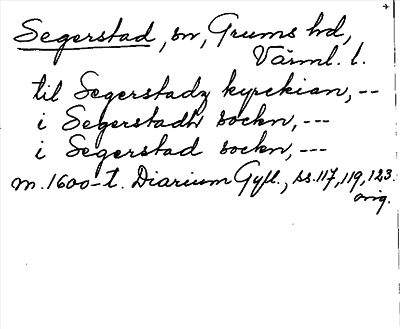 Segerstad, sn, Grums hd,
Värml. l.
til Segerstadz kyrckian, --
i Segerstadh sockn, ---
i Segerstad sockn, ---
m. 1600-t. Diarium Gyll., ss. 117, 119, 123.
orig.